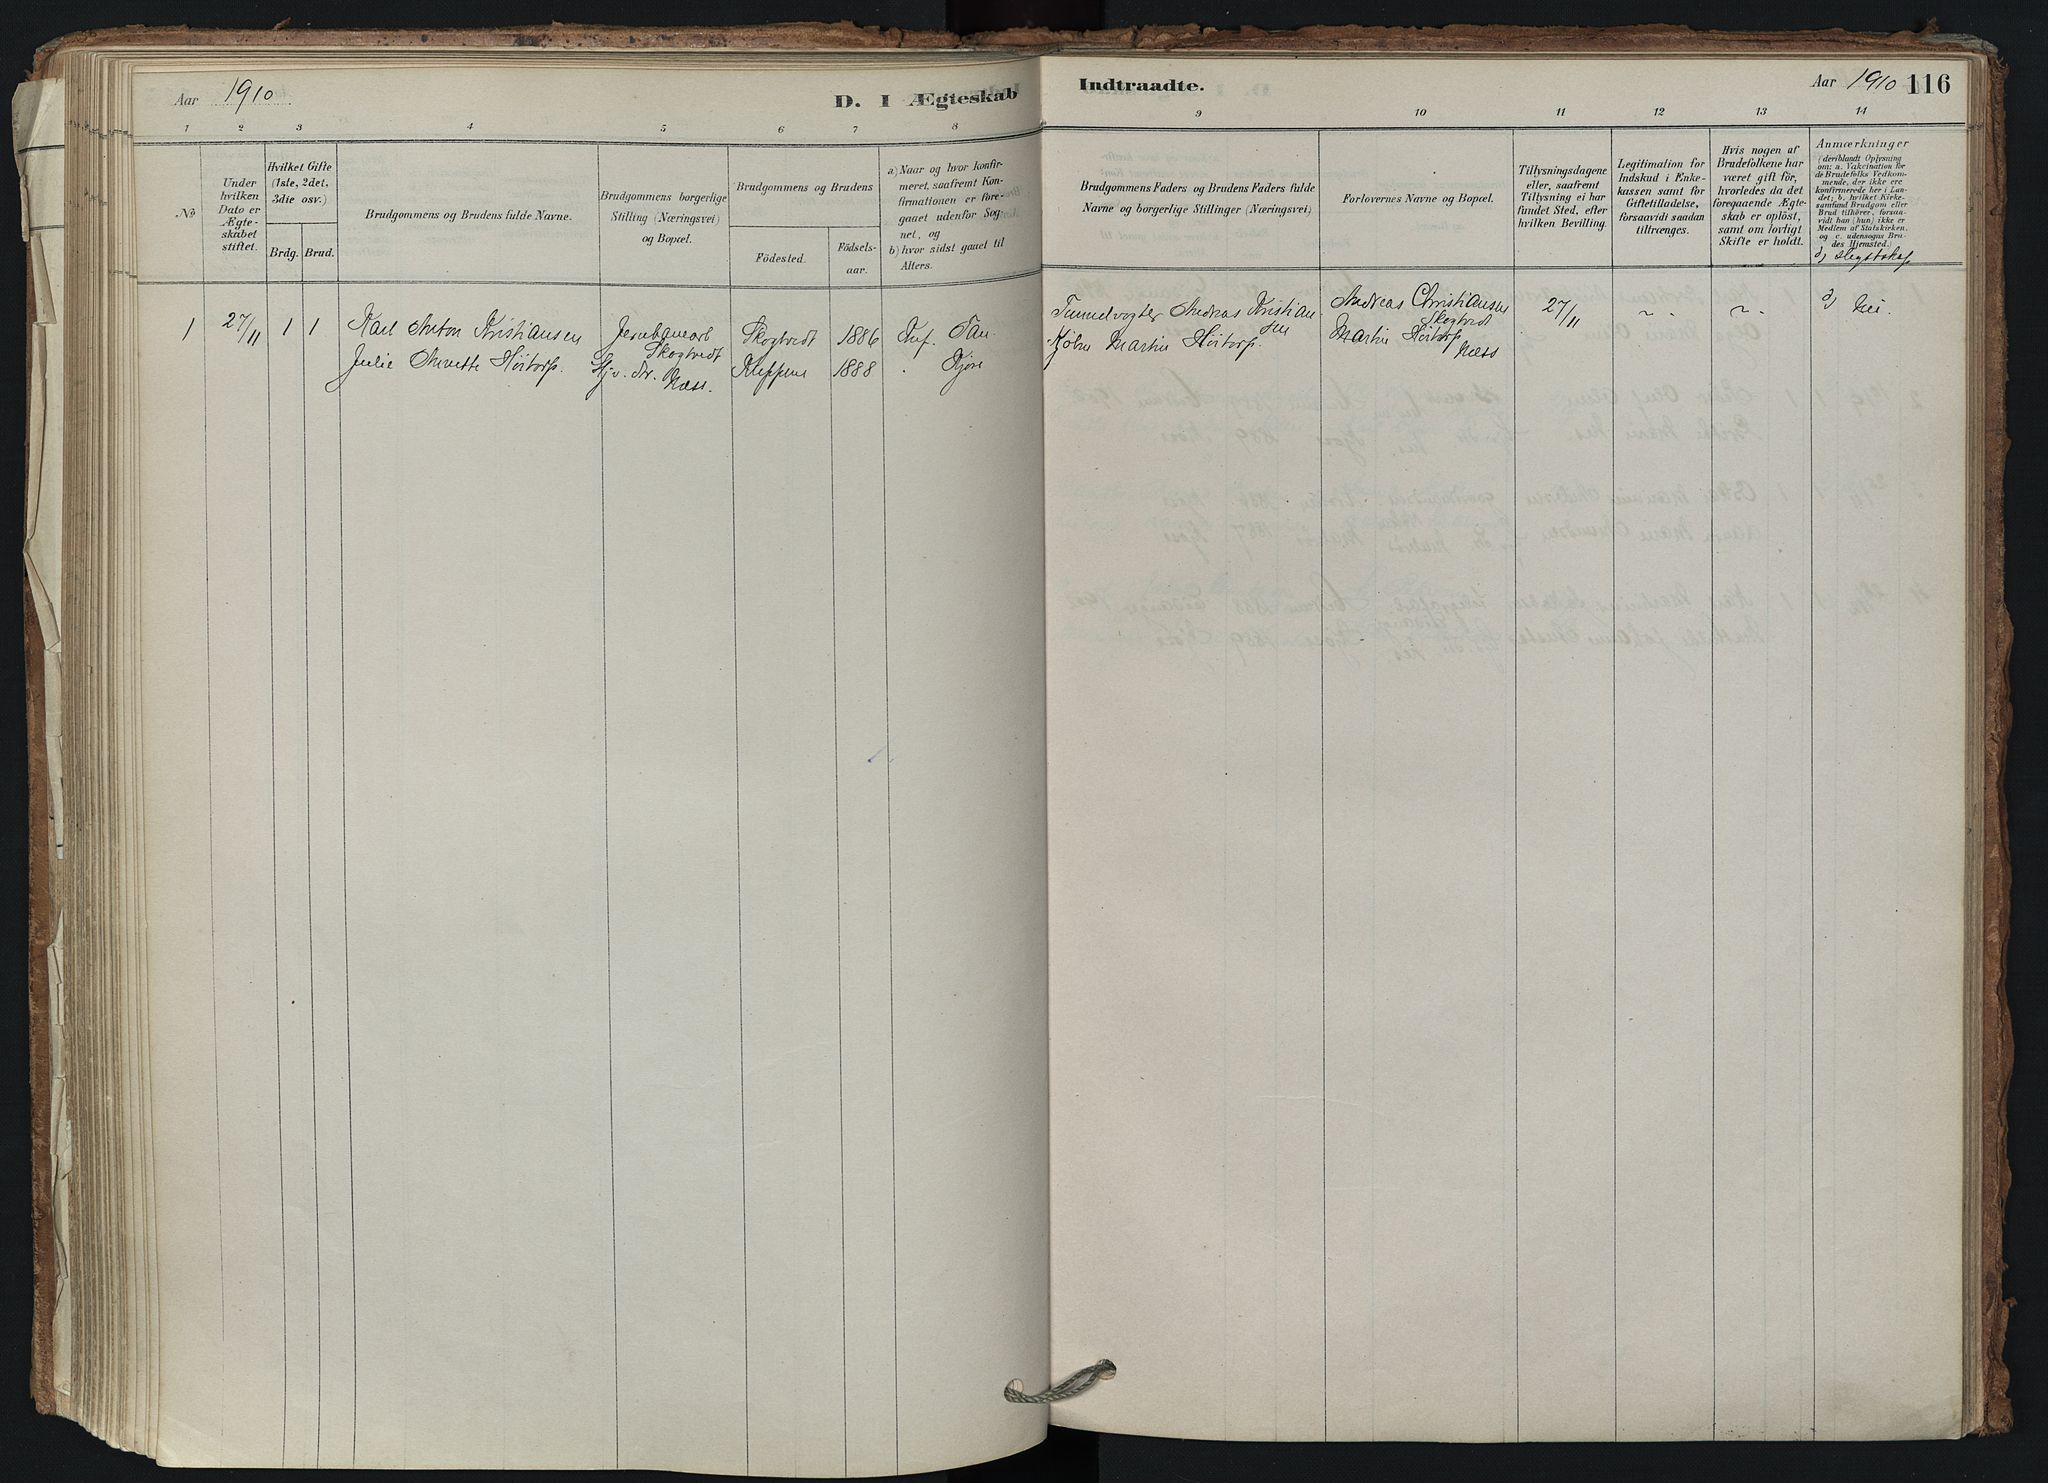 Aar 1910
D. I Ægteskab
Indtraadte.
Aar 1910 116
1 2 3 4 5 6 7 8 9 10 11 12 13 14
No
Under hvilken Dato er Ægte-skabet stiftet.
Hvilket Gifte (1ste, 2det, 3die osv.)
Brdg. Brud.
Brudgommens og Brudens fulde Navne.
Brudgommens borgerlige Stilling (Næringsvei) og Bopæl.
Brudgommens og Brudens
Födested.
Födsels-aar.
a) Naar og hvor konfir-meret, saafremt Kon-firmationen er fore-gaaet udenfor Sog-net, og
b) hvor sidst gaaet til Alters.
Brudgommens Faders og Brudens Faders fulde Navne og borgerlige Stillinger (Næringsvei)
Forlovernes Navne og Bopæl.
Tillysningsdagene eller, saafremt Tillysning ei har fundet Sted, efter hvilken Bevilling.
Legitimation for Indskud i Enke-kassen samt for Giftetilladelse, forsaavidt saadan tiltrænges.
Hvis nogen af Brudefolkene har været gift för, hvorledes da det foregaaende Ægte-skab er oplöst, samt om lovligt Skifte er holdt.
Anmærkninger
(deriblandt Oplysning om: a. Vakcination for de Brudefolks Vedkom-mende, der ikke ere konfirmerede her i Lan-det; b. hvilket Kirke-samfund Brudgom eller Brud tilhörer, forsaa-vidt han (hun) ikke er Medlem af Statskirken, og c. udensogns Bru-des Hjemsted.)
d) Slegtskap
1 27/11 1 1 Karl Anton Kristiansen Jernbanearb. Skogtvedt Skogtvedt 1886
Julie Anette Höitorp. Hjv. dtr. Næss. Kleppene 1888 Kjöse
Tunnelvogter Andreas Kristiansen
Martin Höitorp.
Andreas Christiansen Skogtvedt
Martin Höitorp Næss
27/11 " " d) Nei